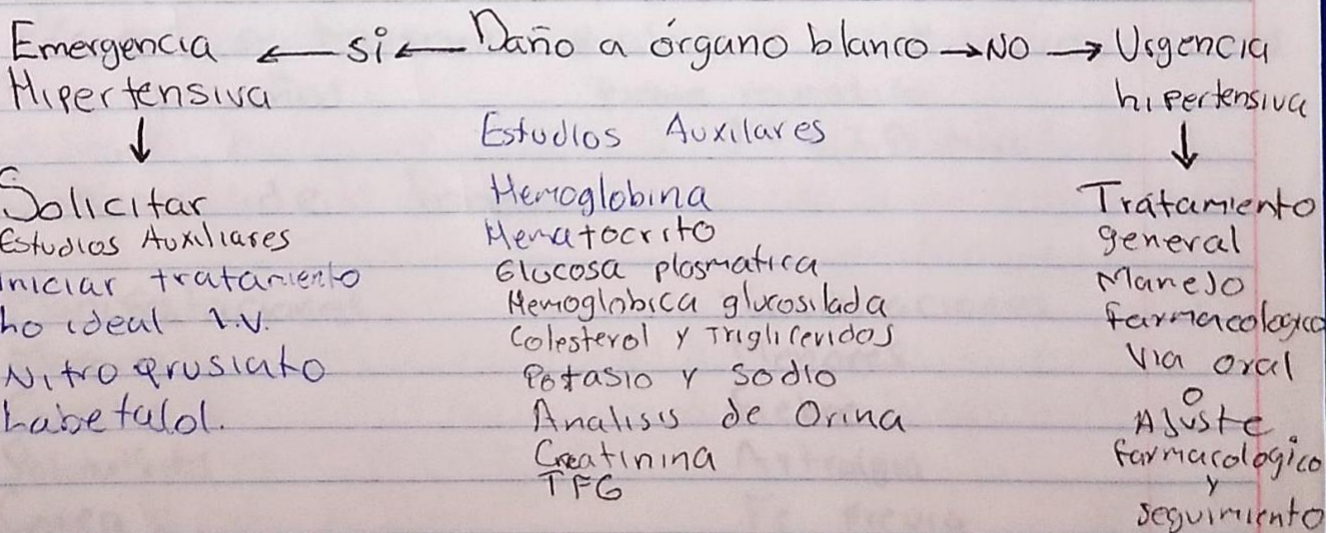 Emergencia ← si ← Daño a órgano blanco → NO → Urgencia
Hipertensiva
hipertensiva
↓
Solicitar
Estudios Auxiliares
Iniciar tratamiento
Lo ideal I.V.
Nitroprusiato
Labetalol.
Estudios Auxilares
Hemoglobina
Hematocrito
Glucosa plasmatica
Hemoglobica glucosilada
Colesterol y Triglicevidos
Potasio y sodio
Analisis de Orina
Creatinina
TFG
↓
Tratamiento
general
Manejo
farmacologico
Via oral
o
Ajuste
farmacologico
y
seguimiento